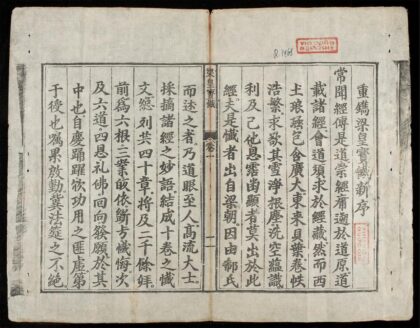 重鐫梁皇寶懺新序
常聞經傳是道宗經庸適於道原道
載諸經會道須求於經藏然而西
土琅函包含廣大東來貝葉卷帙
浩繁求欲其雪淨根塵洗空蘊識
利及己他恩霑幽顯者莫出於此
經夫是懺者出自梁朝因由郗氏
梁皇寶懺
而述之者乃道眼至人高流大士
採摘諸經之妙語結成十卷之懺
文總列共四十章將及二千餘
前爲六根三業皈依斷懺悔次
及六道四恩礼佛回向發願於其
中也自慶踊躍欽功用之匪虛第
于後也囑累冀法筵之不絶